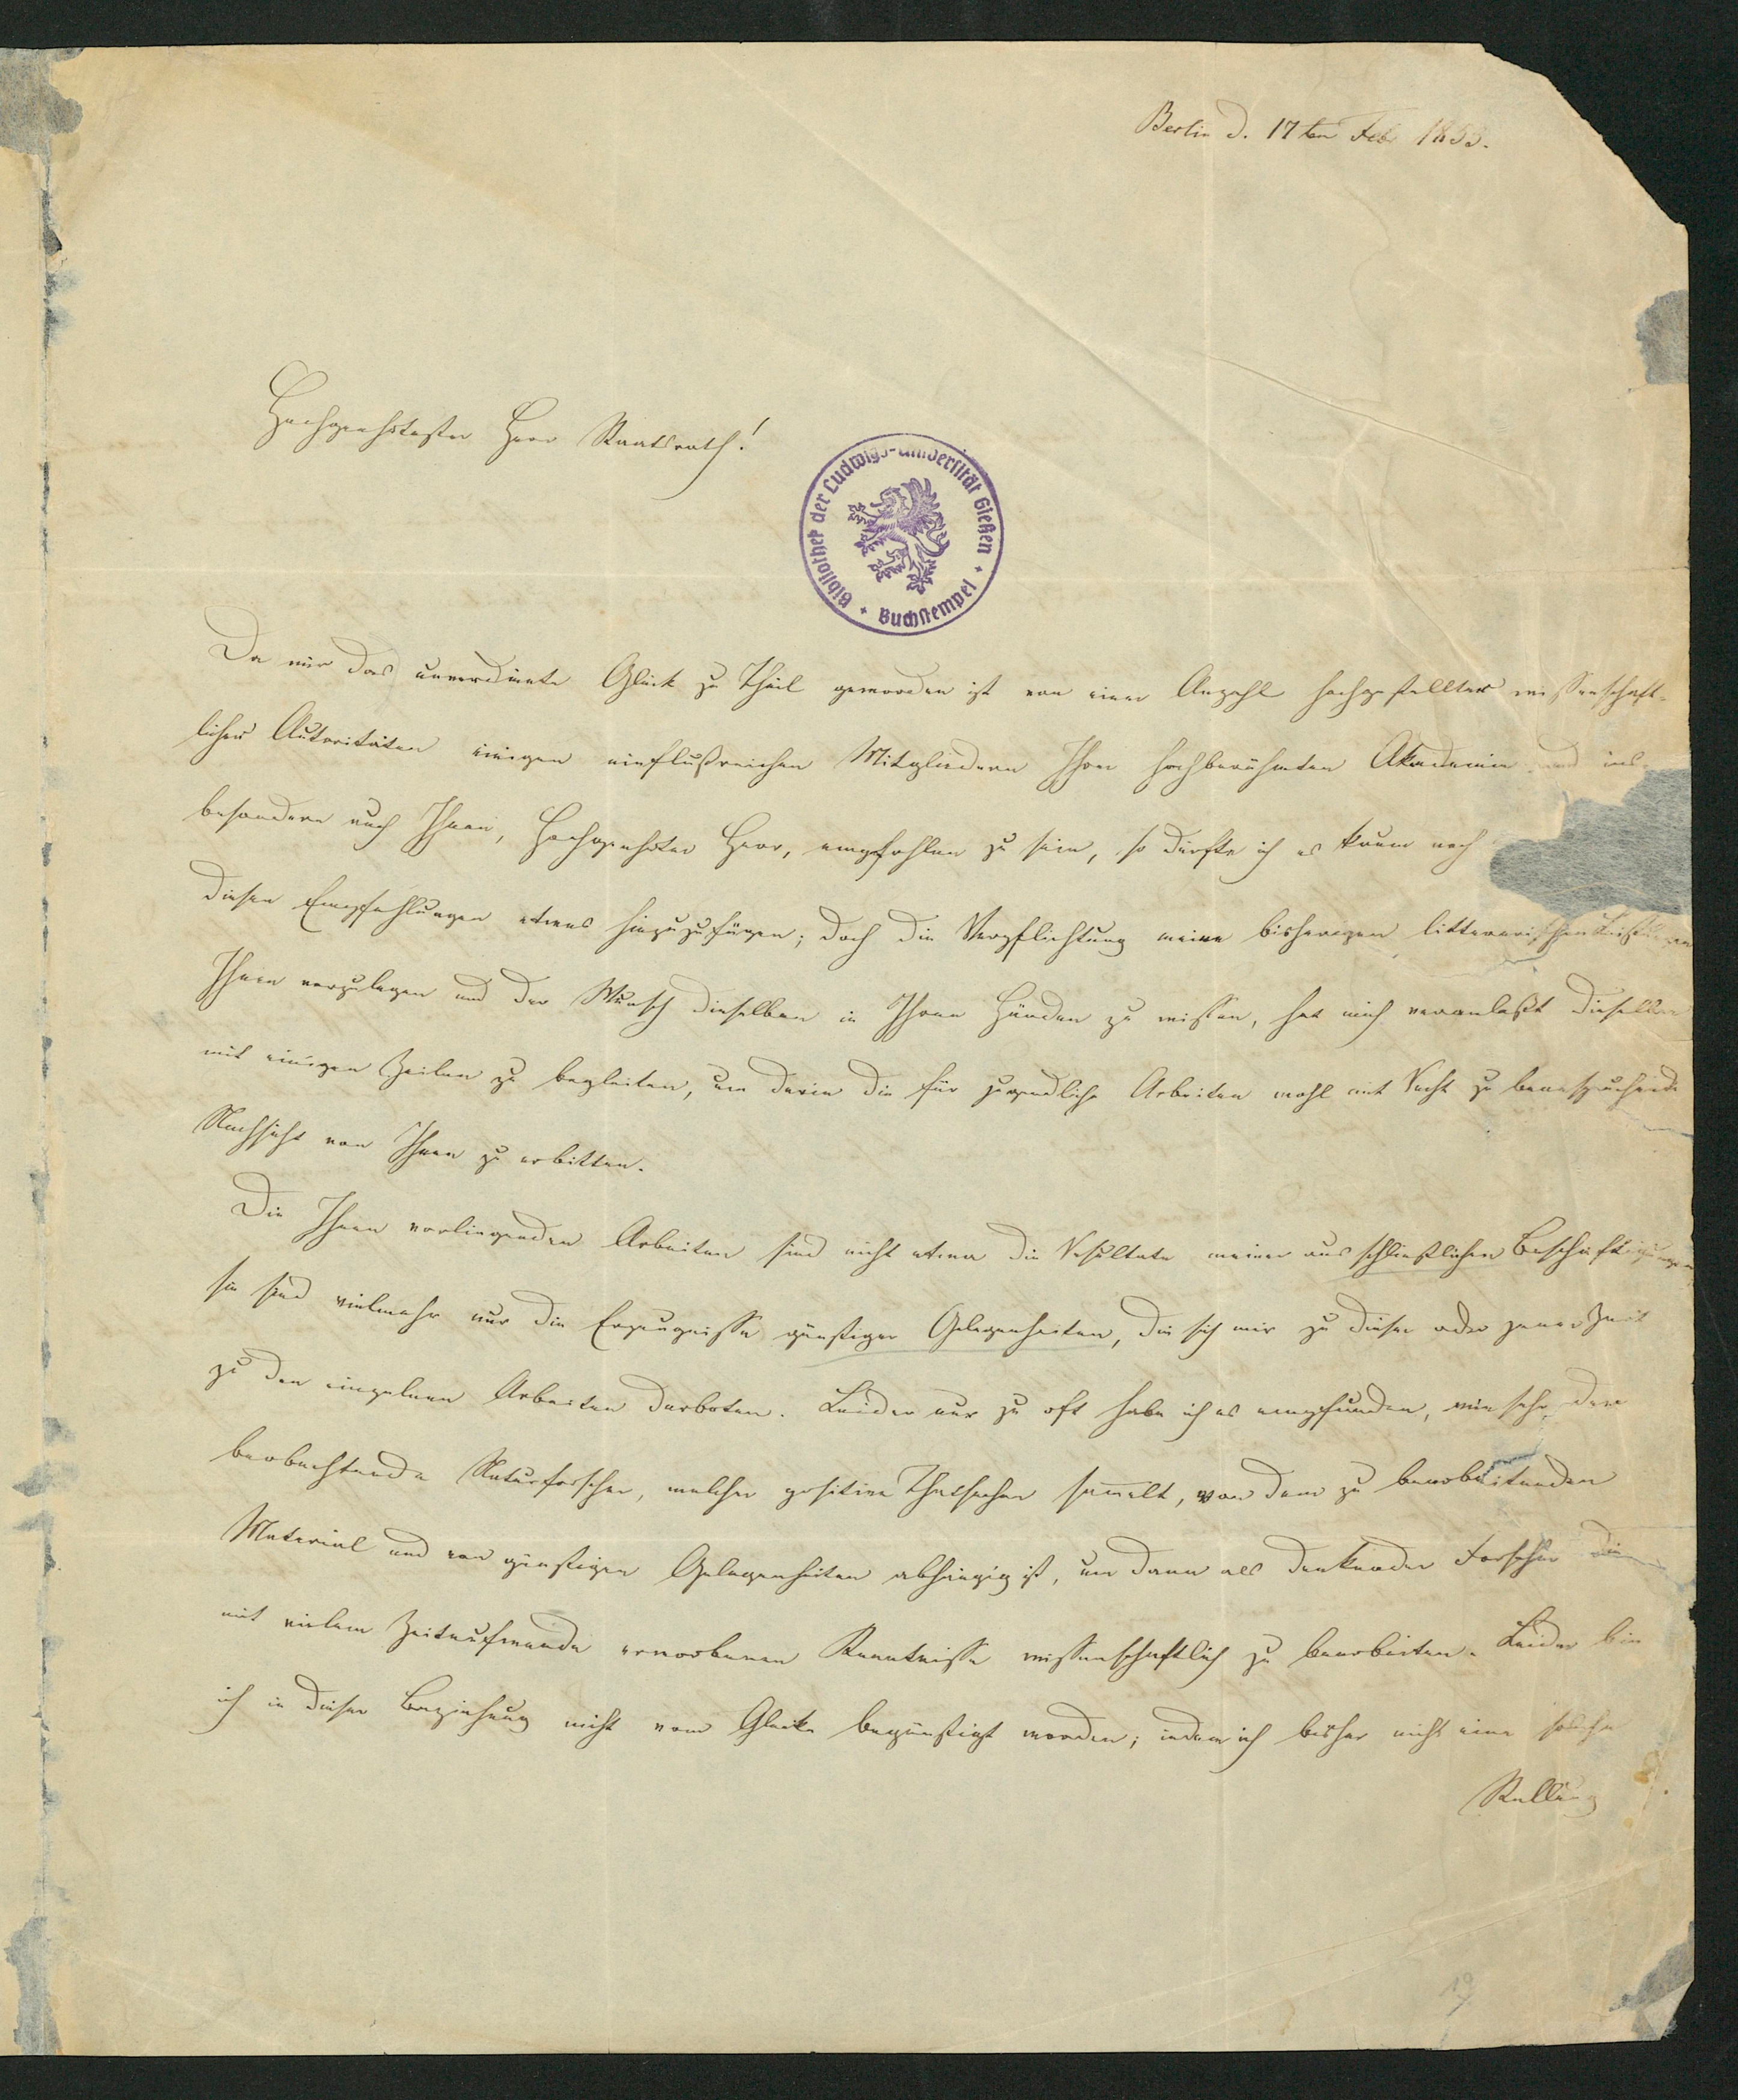 Berlin d. 17ten Feb. 1853.
Hochgeehrtester Herr Staatsrath!
Bibliothek der Ludwigs-Universität Gießen + Buchstempel +
Da mir das unverdiente Glück zu Theil geworden ist von einer Anzahl hochgestellter wissenschaft-
licher Autoritäten einigen einflußreichen Mitgliedern Ihrer hochberühmten Akademie und ins-
besondere auch Ihnen, Hochgeehrter Herr, empfohlen zu sein, so dürfte ich es kaum noch
diesen Empfehlungen etwas hinzuzufügen; doch die Verpflichtung meine bisherigen litterarischen Leistungen
Ihnen vorzulegen und der Wunsch dieselben in Ihren Händen zu wissen, hat mich veranlaßt dieselben
mit einigen Zeilen zu begleiten, um darin die für jugendliche Arbeiten wohl mit Recht zu beanspruchende
Nachsicht von Ihnen zu erbitten.
Die Ihnen vorliegenden Arbeiten sind nicht etwa die Resultate meiner ausschließlichen Beschäftigungen
sie sind vielmehr nur die Erzeugnisse günstiger Gelegenheiten, die sich mir zu dieser oder jener Zeit
zu den einzelnen Arbeiten darboten. Leider nur zu oft habe ich es empfunden, wie sehr der
beobachtende Naturforscher, welcher positive Thatsachen sammelt, von dem zu bearbeitenden
Material und von günstigen Gelegenheiten abhängig ist, um dann als denkender Forscher die
mit vielem Zeitaufwande erworbenen Kenntnisse wissenschaftlich zu bearbeiten. Leider bin
ich in dieser Beziehung nicht vom Glücke begünstigt worden; indem ich bisher nicht eine solche
Stellung
19